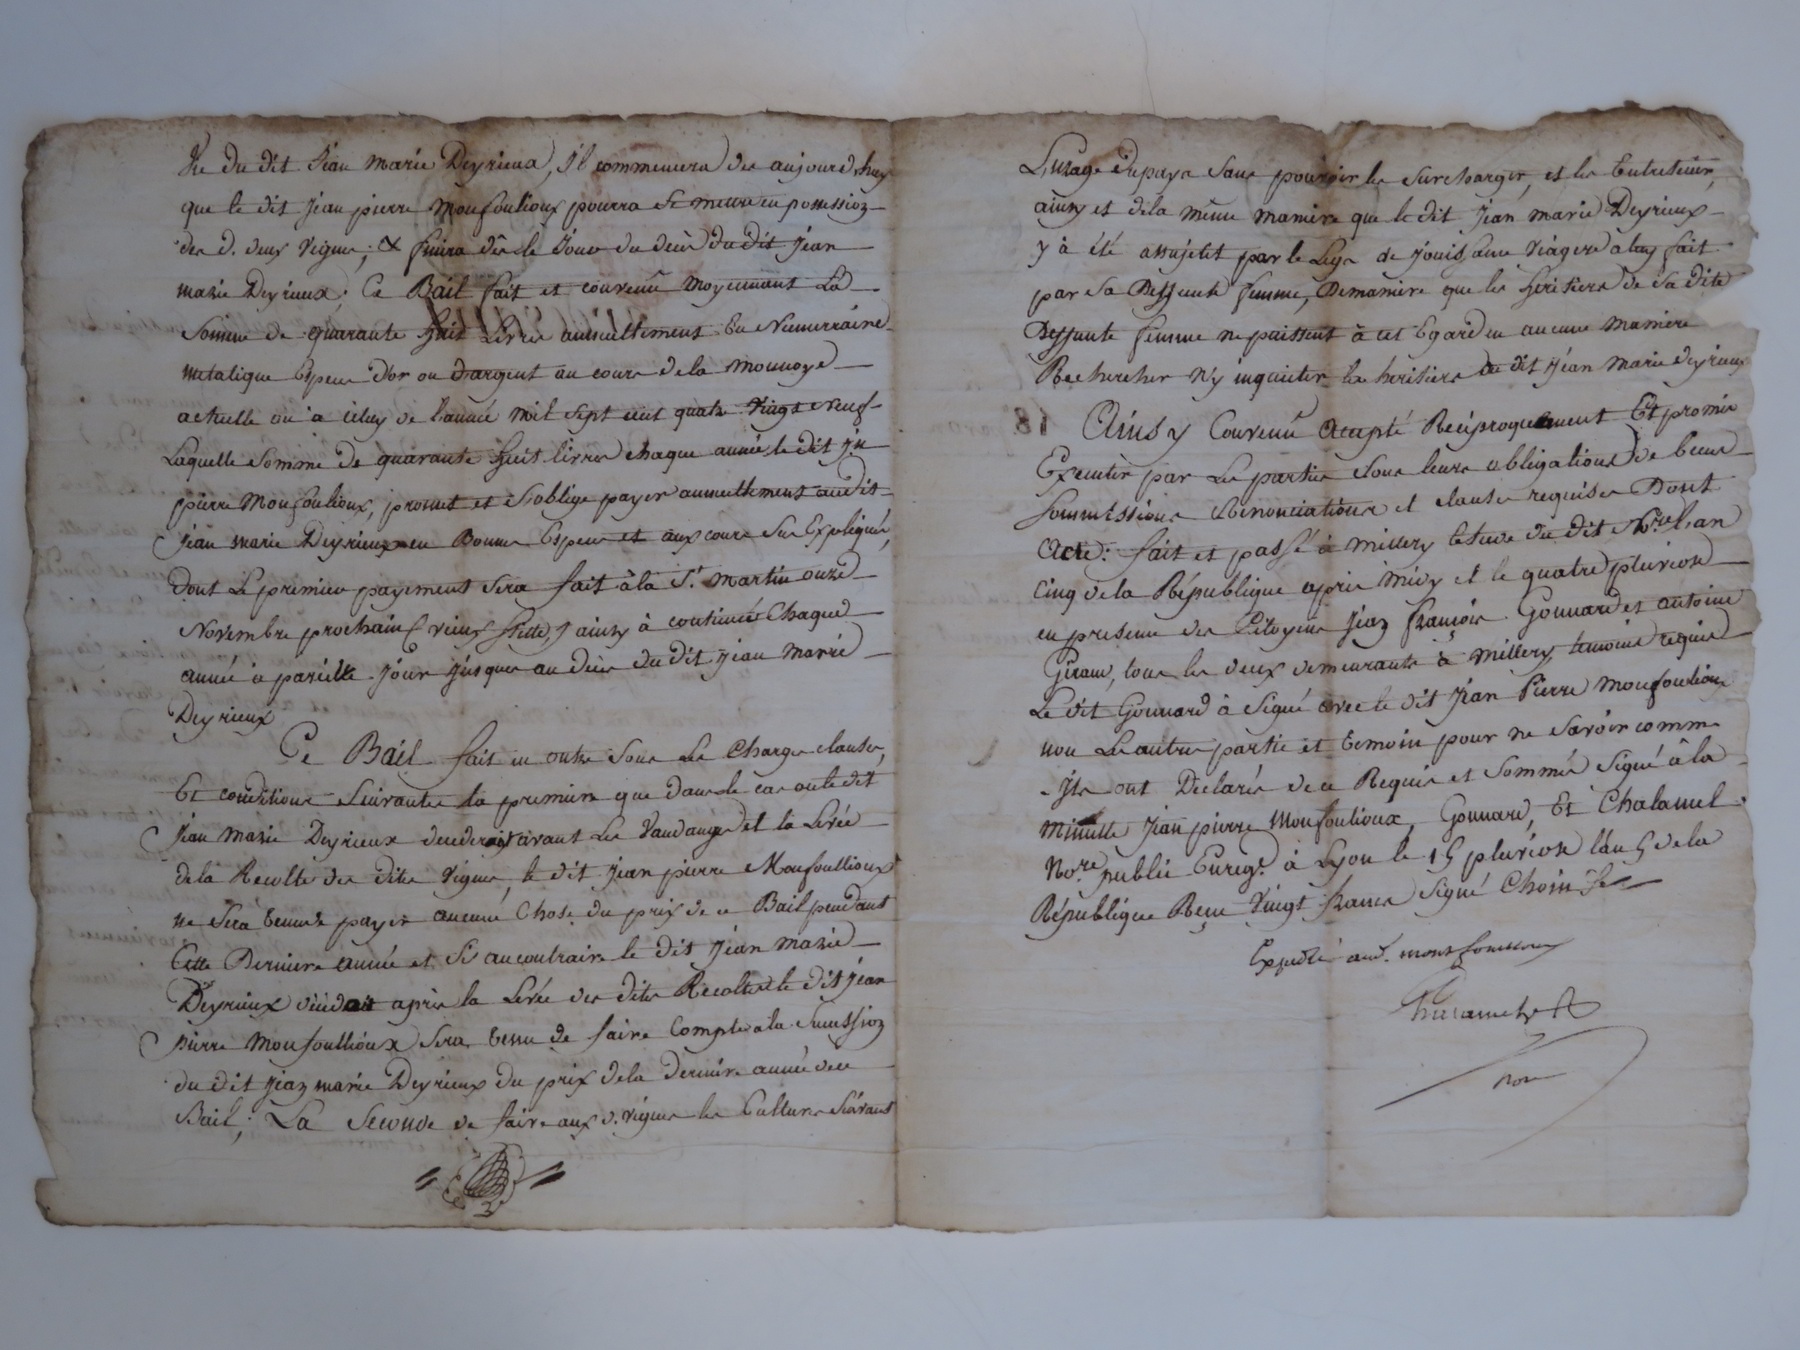 Vie du dit Jean marie Deyrieux, Il commencera des aujourd,huy
que le dit Jean pierre Monfoulioux pourra se mettre en possession
des d. deux vignes, & finira dès le Jour du decès du dit Jean
marie Deyrieux; Ce Bail fait et convenû moyennant La
Somme de quarante huit Livres annuellement En Numerraire
metalique Espece d'or ou d'argent au cours de la monnoye
actuelle ou à celuy de l'année mil sept cent quatre vingt neuf
Laquelle Somme de quarante huit livres chaque année le dit Jn
pierre Monfoulioux, promet et s'oblige payer annuellement audit
Jean marie Deyrieux en Bonnes Especes et aux cours Sus Expliqués,
dont Le premier payement sera fait à la St martin onze
Novembre prochain vieux Stile, & ainsy à continuer Chaque
année à pareille Jour Jusques au décès du dit Jean marie
Deyrieux
Ce Bail fait en outre Sous Les Charges clauses,
Et conditions Suivantes la premiere que dans le cas ou le dit
Jean marie Deyrieux decederait avant Les Vandanges et la Levée
de la Recolte des dites vignes, le dit Jean pierre Monfoullioux
ne Sera tenu de payer aucune Chose du prix de ce Bail pendant
Cette Derniere année et Si au contraire le dit Jean marie
Deyrieux décédoit après la Levée des dites Recoltes le dit Jean
pierre Monfoullioux Sera tenu de faire Compte à la Succession
du dit Jean marie Deyrieux du prix de la derniere année de ce
Bail; La Seconde de faire aux d. vignes les Cultures Suivant
L'usage du pays sans pouvoir les surcharger, et les Entretenir,
ainsy et de la même maniere que le dit Jean marie Deyrieux
y à été assujetit par le Legs de Jouissance viagere a luy fait
par sa Deffunte femme, De maniere que les héritiers de sa dite
Deffunte femme ne puissent à cet Egard en aucune maniere
Rechercher n'y inquieter les heritiers du dit Jean marie deyrieux
Ainsy Convenû accepté Réciproquement Et promis
Executer par Les parties Sous leurs obligations de biens
Soumissions Renonciations et clauses requises Dont
Acte: fait et passé à millery Etude du dit Nre L'an
Cinq de la République après midy et le quatre pluviose
en presence des Citoyens Jean françois Gonnard et antoine
Giraud, tous les deux demeurants à Millery temoins requis
Le dit Gonnard à Signé avec le dit Jean Pierre Monfoulioux
non Les autres parties et temoin pour ne Savoir comme
Ils ont Déclarés de ce Requis et Sommés Signé à la
Minutte Jean pierre Monfoulioux, Gonnard, Et Chalamel
Nore public Enregé à Lyon le 15 pluviose l'an 5 de la
République Reçu vingt francs Signé Choin
Expedié aud. montfoulioux
Chalamel
nore